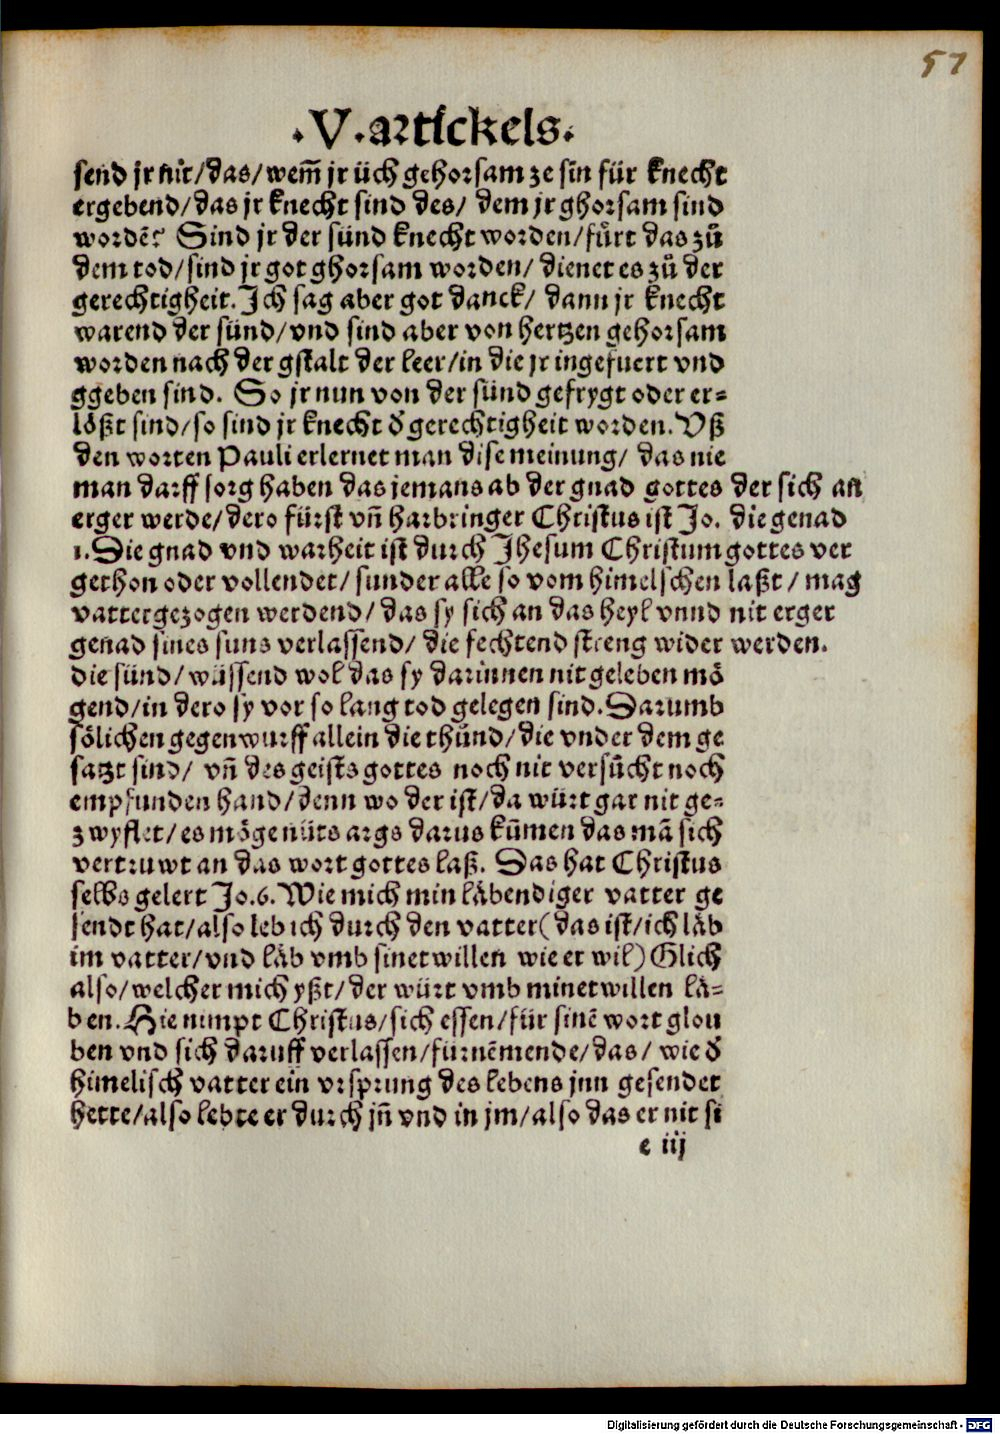 57
.V.artickels.
send jr nit/das/wem̄ jr üch gehorsam ze sin für knecht
ergebend/das jr knecht sind des/ dem jr ghorsam sind
wordē? Sind jr der sünd knecht worden/fürt das zů
dem tod/sind jr got ghorsam worden/ dienet es zů der
gerechtigheit. Ich sag aber got danck/ dann jr knecht
warend der sünd/vnd sind aber von hertzen gehorsam
worden nach der gstalt der leer/in die jr ingefuert vnd
ggeben sind. So jr nun von der sünd gefrygt oder er-
lößt sind/so sind jr knecht d̄ gerechtigheit worden. Vß
den worten Pauli erlernet man dise meinung/ das nie
man darff sorg haben das jemans ab der gnad gottes
erger werde/dero fürst vn̄ harbringer Christus ist Jo.
1. Die gnad vnd warheit ist durch Jhesum Christum
gethon oder vollendet/ sunder alle so vom himelschen
vatter gezogen werdend/ das sy sich an das heyl vnnd
genad sines suns verlassend/ die fechtend streng wider
die sünd/ wüssend wol das sy darinnen nit geleben mö
gend/in dero sy vor so lang tod gelegen sind. Darumb
sölichen gegenwurff allein die thůnd/die vnder dem ge
satzt sind/ vn̄ des geists gottes noch nit versůcht noch
empfunden hand/denn wo der ist/da würt gar nit ge-
zwyflet/es möge nüts args darus kūmen das mā sich
vertruwt an das wort gottes laß. Das hat Christus
selbs gelert Jo.6. Wie mich min läbendiger vatter ge
sendt hat/also leb ich durch den vatter(das ist/ich läb
im vatter/vnd läb vmb sinet willen wie er wil) Glich
also/welcher mich yßt/der würt vmb minet willen lä-
ben. Hie nimpt Christus/sich essen/für sinē wort glou
ben vnd sich daruff verlassen/fürnēmende/das/ wie d̄
himelisch vatter ein vrsprung des lebens jnn gesendet
hette/also lebte er durch jn̄ vnd in jm/also das er nit si
der sich an
die genad
gottes ver
laßt / mag
nit erger
werden.
e iij
Digitalisierung gefördert durch die Deutsche Forschungsgemeinschaft - DFG